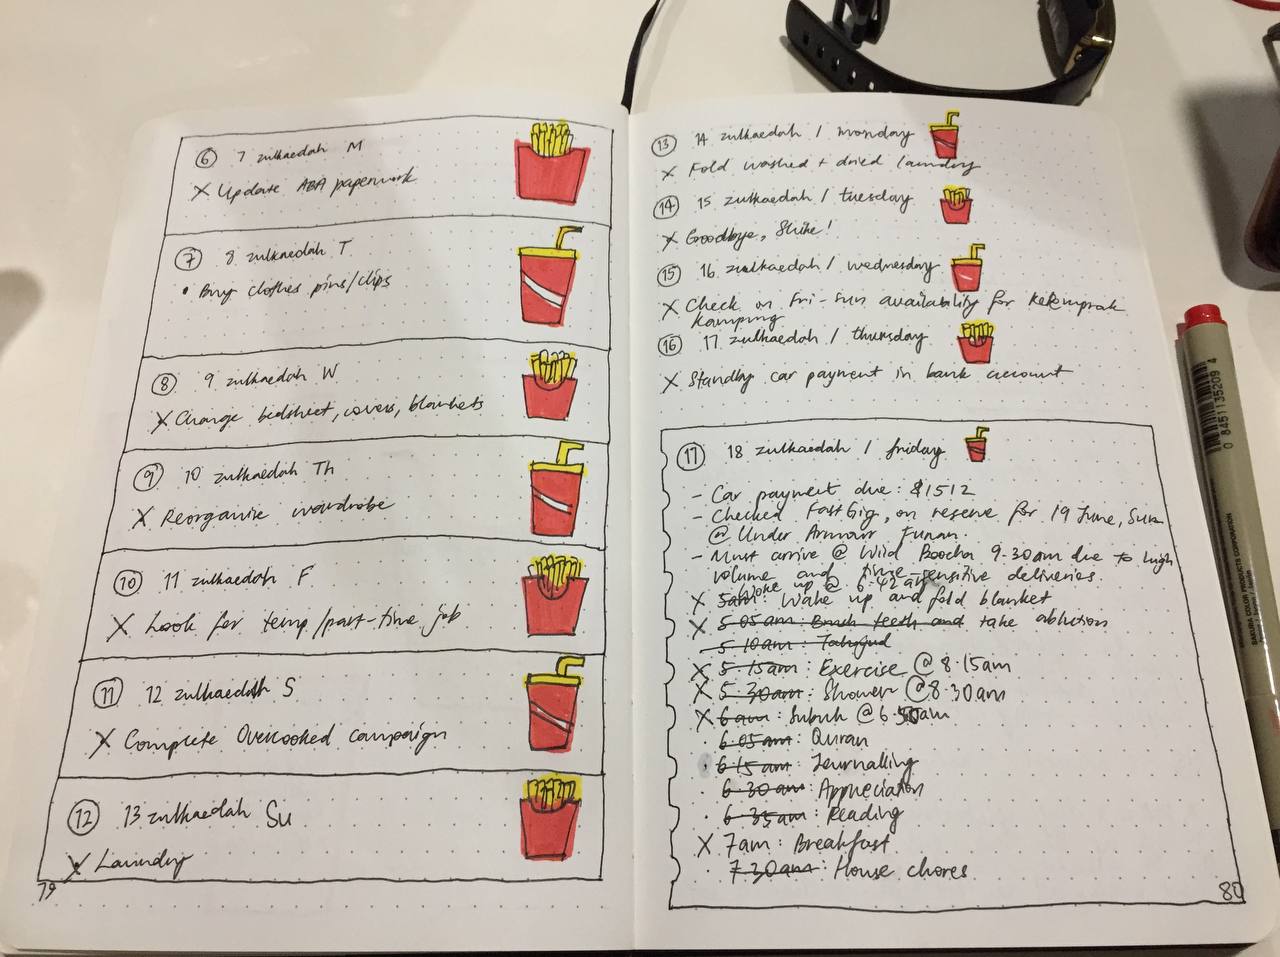 6 7 zulkaedah M
X Update ABA paperwork
7 8 zulkaedah T
• Buy clothes pins/clips
8 9 zulkaedah W
X Change bedsheet, covers, blankets
9 10 zulkaedah Th
X Reorganise wardrobe
10 11 zulkaedah F
X Look for temp/part-time job
11 12 zulkaedah S
X Complete Overcooked campaign
12 13 zulkaedah Su
X Laundry
79
13 14 zulkaedah / monday
X Fold washed + dried laundry
14 15 zulkaedah / tuesday
X Goodbye, !
15 16 zulkaedah / wednesday
X Check on Fri-Sun availability for Ketemprak
Kamping
16 17 zulkaedah / thursday
X Standby car payment in bank account
17 18 zulkaedah / friday
- Car payment due: $1512
- Checked FastGig, on reserve for 19 June, Sun
@ Under Armour Funan.
- Must arrive @ Wild Boocha 9.30am due to high
volume and time-sensitive deliveries.
Woke up @ 6.42am
X 5am: Wake up and fold blanket
X 5.05am: Brush teeth and take ablution
5.10am: Tahajjud
X 5.15am: Exercise @ 8.15am
X 5.30am: Shower @ 8.30am
X 6am: Subuh @ 6.50am
· 6.05am: Quran
· 6.15am: Journalling
· 6.30am: Appreciation
· 6.35am: Reading
X 7am: Breakfast
· 7.30am: House chores
80
0 8451135209 4
SAKURA COLOR PRODUCTS CORPORATION